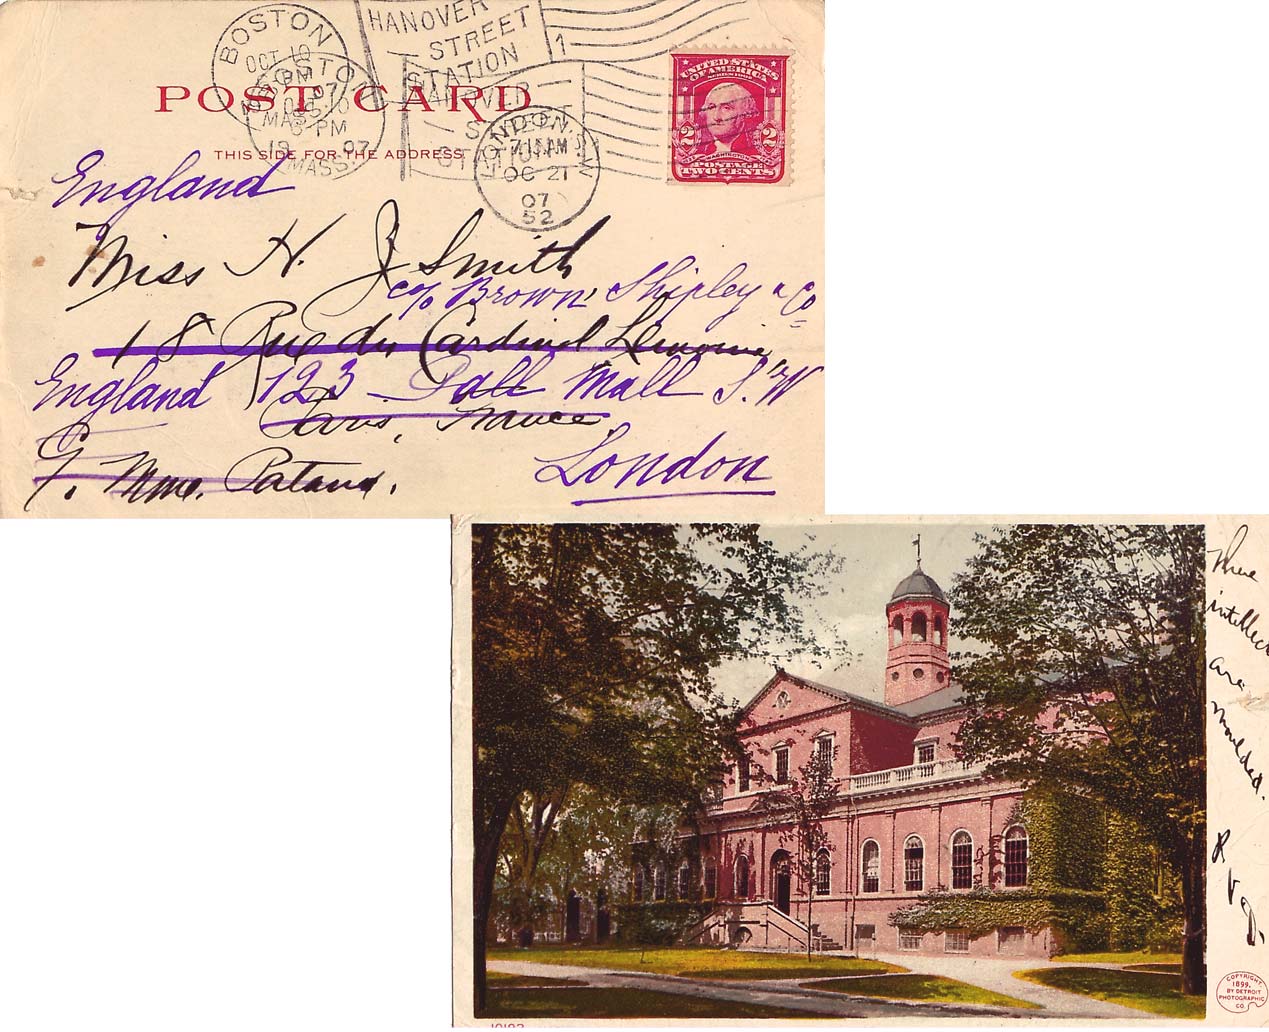 BOSTON
OCT 10
PM
07
MASS.
BOSTON
OCT 10
3-PM
07
MASS.
HANOVER
STREET
STATION
1
HANOVER
STREET
STATION
LONDON. S.W
7.15 AM
OC 21
07
52
UNITED STATES
OF AMERICA
SERIES 1902
2 2
WASHINGTON
POSTAGE
TWO CENTS
POST CARD
THIS SIDE FOR THE ADDRESS
England
Miss H. J Smith
c/o Brown, Shipley & Co
18 Rue du Cardinal Lemoine,
England 123 Pall Mall S.W
Paris, France,
Mme.
London
intellects
are
moulded.
R V J.
COPYRIGHT,
1899,
BY DETROIT
PHOTOGRAPHIC
CO.